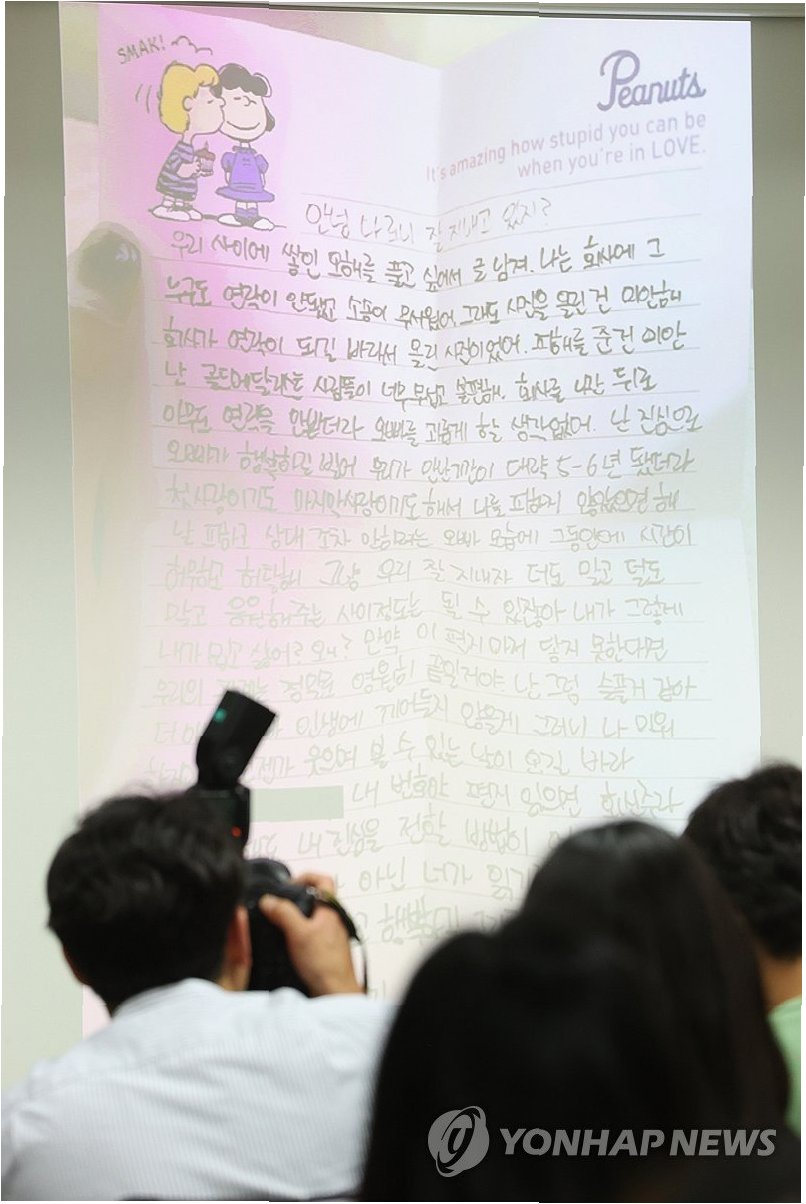 SMAK!
Peanuts
It's amazing how stupid you can be
when you're in LOVE.
안녕 나론니 잘 지내고 있지?
우리 사이에 쌓인 오해를 풀고 싶어서 글 남겨. 나는 회사에 그
누구도 연락이 안됐고 소송이 무서웠어. 그래도 사진을 올린 건 미안해
회사가 연락이 되길 바라서 올린 사진이었어. 피해를 준 건 미안
난 골드메달리스트 사람들이 너무 무섭고 불편해. 회사를 나간 뒤로
아무도 연락을 안받더라 오빠를 괴롭게 할 생각없어. 난 진심으로
오빠가 행복하길 빌어 우리가 만난기간이 대략 5-6년 됐더라
첫사랑이기도 마지막사랑이기도 해서 나를 피하지 않았으면 해
난 피하고 상대 조차 안하려는 오빠 모습에 그동안에 시간이
허무하고 허탈해 그냥 우리 잘 지내자 더도 말고 덜도
말고 응원해주는 사이정도는 될 수 있잖아 내가 그렇게
내가 밉고 싫어? 왜? 만약 이 편지마저 닿지 못한다면
우리의 관계는 정말로 영원히 끝일거야 난 그럼 슬플거 같아
더 이 인생에 끼어들지 않을게 그러니 나 미워
하지 웃으며 볼 수 있는 날이 오길 바라
내 번호야 편지 읽으면 회신주라
내 진심을 전할 방법이
아닌 너가 읽기
행복
YONHAP NEWS